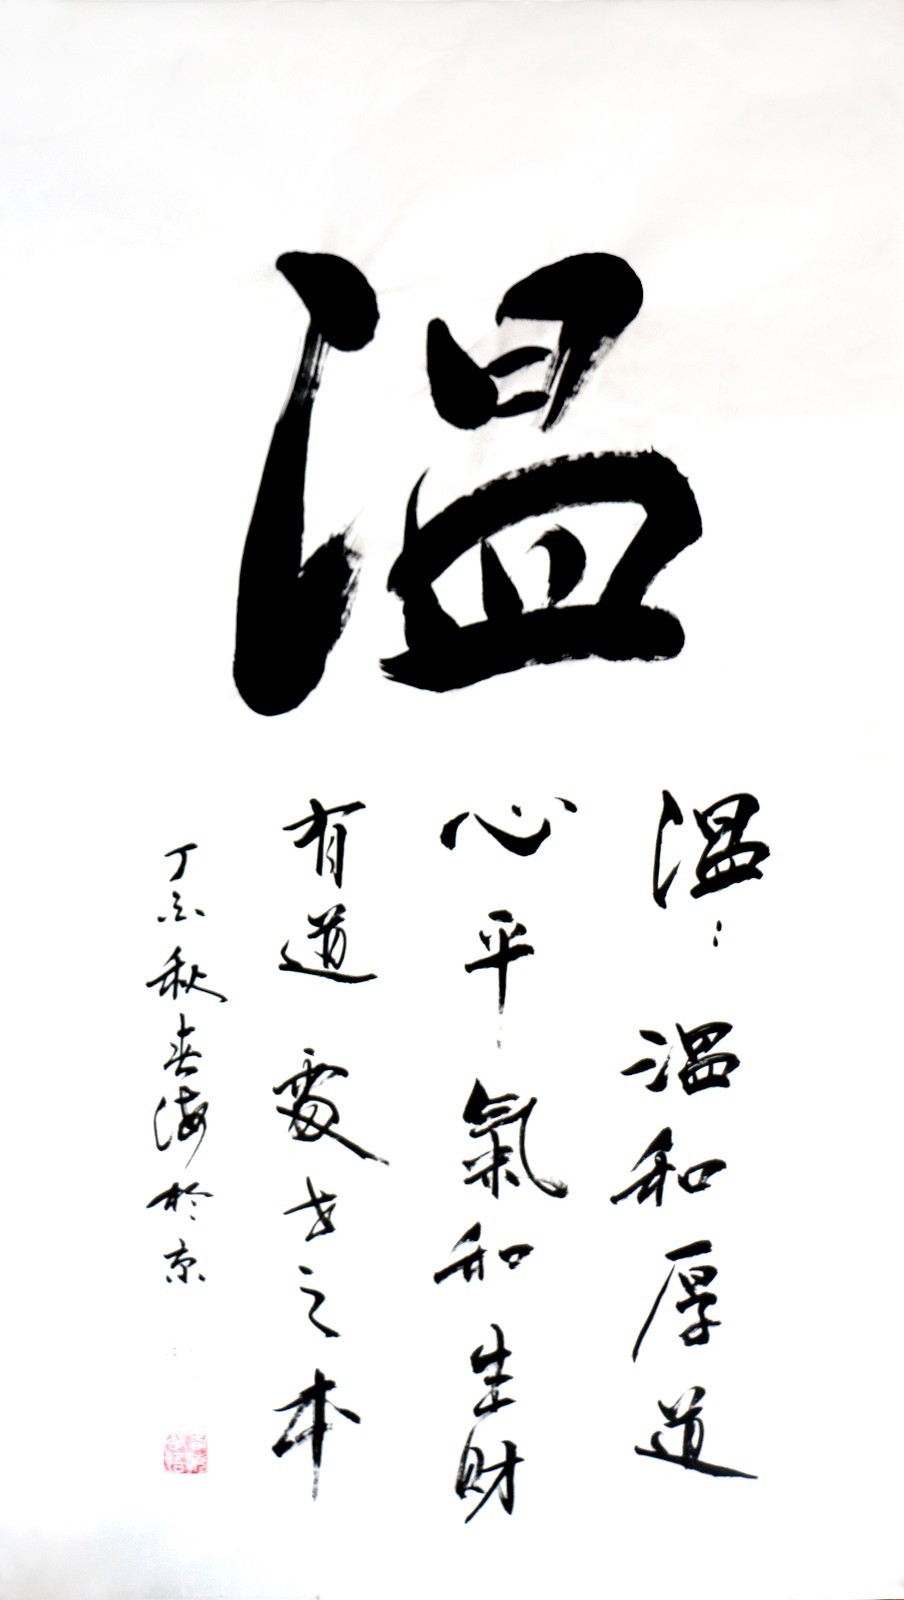 温
温：温和厚道
心平氣和生财
有道處世之本
丁亥秋春海於京